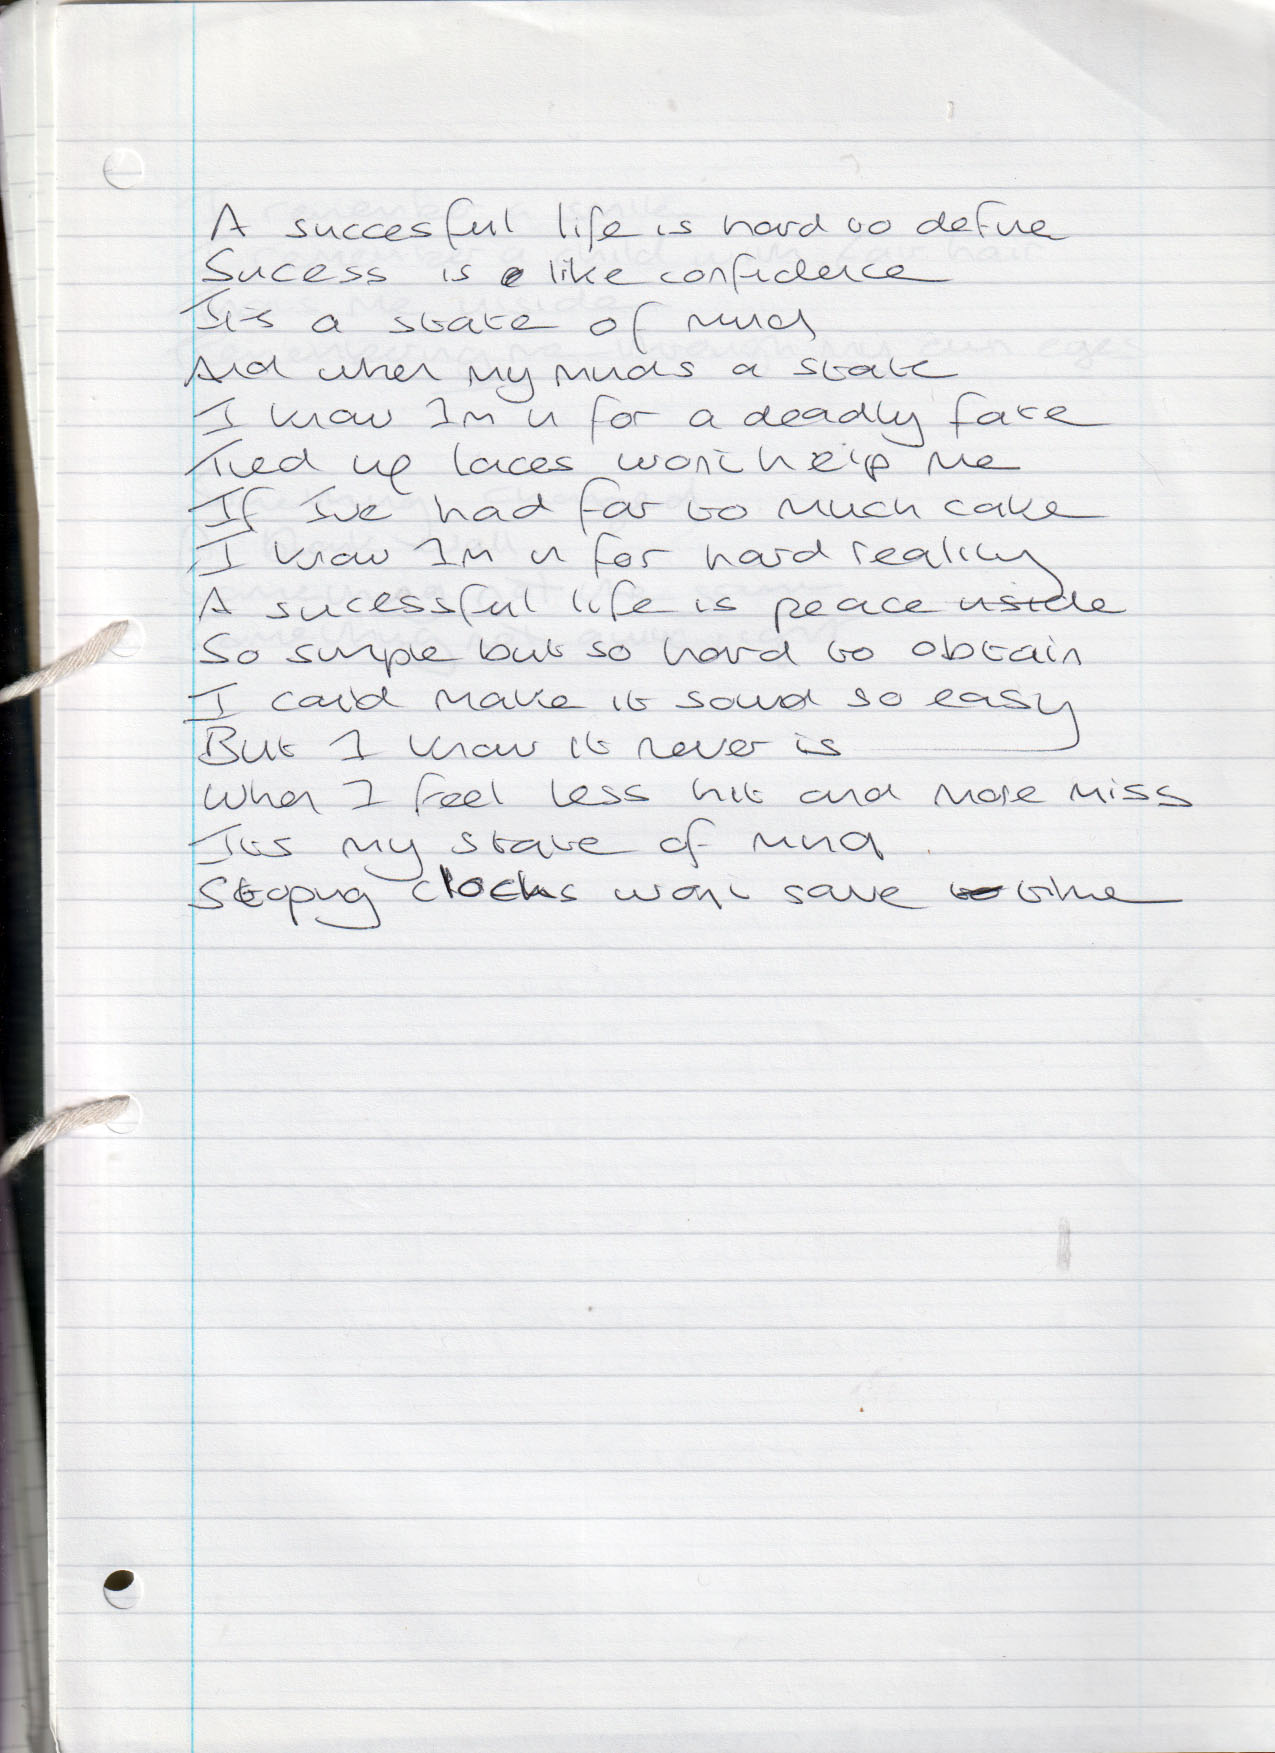 A succesful life is hard to define
Sucess is like confidence
Its a state of mind
And when my minds a state
I know Im in for a deadly fate
Tied up laces wont help me
If Ive had far to much cake
I know Im in for hard reality
A sucessful life is peace inside
So simple but so hard to obtain
I could make it sound so easy
But I know it never is
When I feel less hit and more miss
Its my state of mind
Stoping clocks wont save time